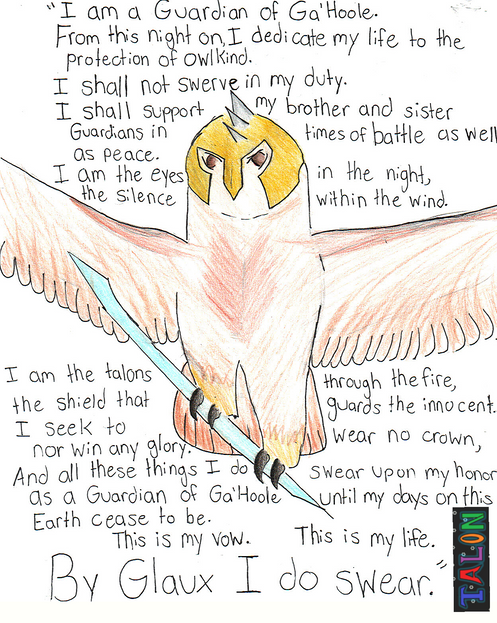 "I am a Guardian of Ga'Hoole.
From this night on, I dedicate my life to the
protection of owlkind.
I shall not swerve in my duty.
I shall support my brother and sister
Guardians in times of battle as well
as peace.
I am the eyes in the night,
the silence within the wind.
I am the talons through the fire,
the shield that guards the innocent.
I seek to wear no crown,
nor win any glory.
And all these things I do swear upon my honor
as a Guardian of Ga'Hoole until my days on this
Earth cease to be.
This is my vow. This is my life.
By Glaux I do swear."
TALON